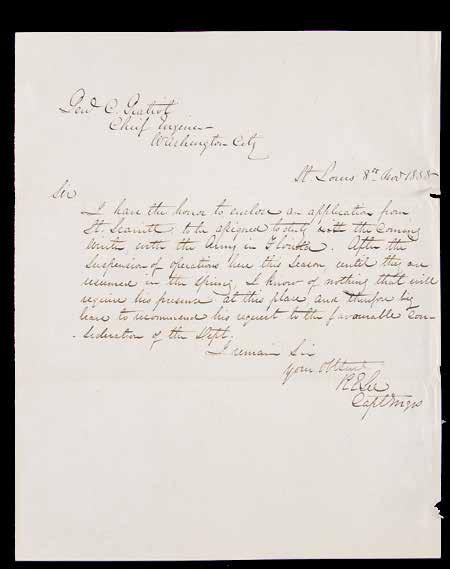 Genl C. Gratiot
Chief Engineer
Washington City
St. Louis 8th Nov 1838
Sir
I have the honor to enclose an application from
Lt. Scarritt to be assigned to duty with the Coming
Winter with the Army in Florida. After the
Suspension of operations here this Season, until they are
resumed in the Spring, I know of nothing that will
require his presence at this place and therefore beg
leave to recommend his request to the favourable Con-
-sideration of the Dept.
I remain Sir
Your Obt Servt
R E Lee
Capt Engrs